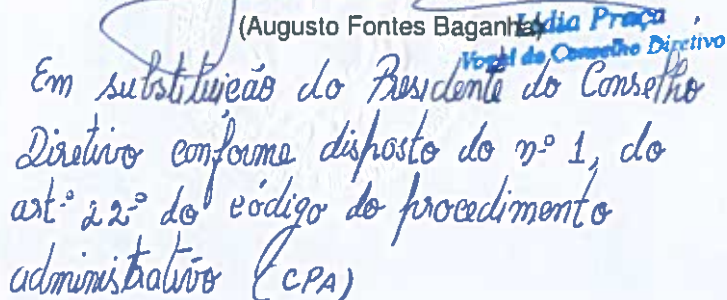 (Augusto Fontes Baganha)
Lídia Praça
Vogal do Conselho Diretivo
Em substituição do Presidente do Conselho
Diretivo conforme disposto do nº 1, do
artº 22º do código do procedimento
administrativo (CPA)